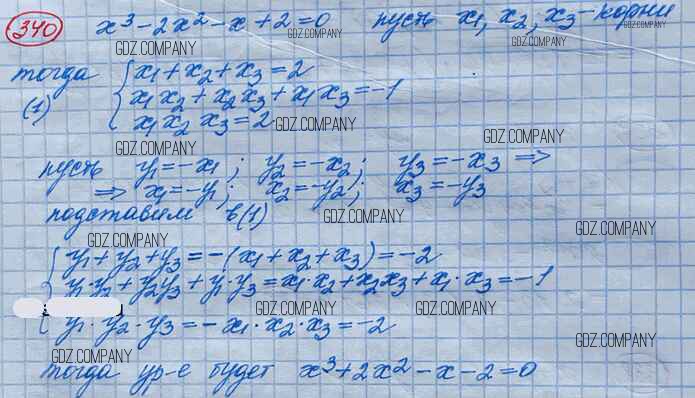 340 x³-2x²-x+2=0 пусть x₁, x₂, x₃ - корни
GDZ.COMPANY GDZ.COMPANY GDZ.COMPANY GDZ.COMPANY
тогда { x₁+x₂+x₃=2
(1) x₁x₂+x₂x₃+x₁x₃=-1
x₁x₂x₃=2 GDZ.COMPANY
GDZ.COMPANY GDZ.COMPANY
пусть y₁=-x₁; y₂=-x₂; y₃=-x₃ ⇒
⇒ x₁=-y₁; x₂=-y₂; x₃=-y₃
подставим в(1) GDZ.COMPANY
GDZ.COMPANY GDZ.COMPANY
{ y₁+y₂+y₃=-(x₁+x₂+x₃)=-2
y₁·y₂+y₂y₃+y₁·y₃=x₁·x₂+x₂x₃+x₁·x₃=-1
GDZ.COMPANY GDZ.COMPANY
y₁·y₂·y₃=-x₁·x₂·x₃=-2
GDZ.COMPANY GDZ.COMPANY
тогда ур-е будет x³+2x²-x-2=0